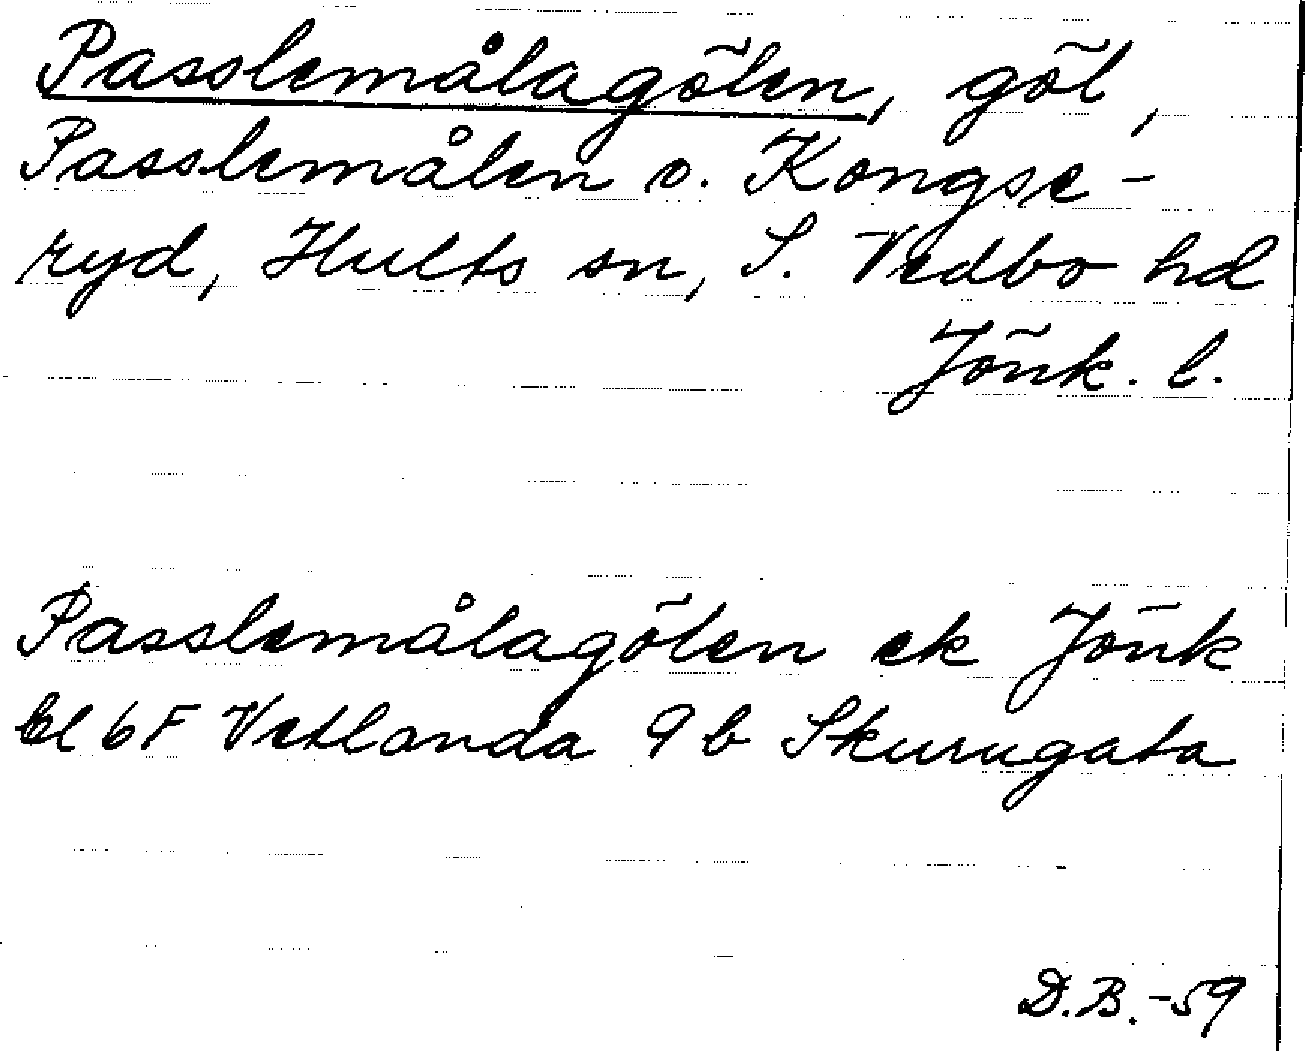 Passlemålagölen, göl,
Passlemålen o. Kongse-
ryd, Hults sn, S. Vedbo hd
Jönk. l.
Passlemålagölen ek Jönk
bl 6F Vetlanda 9b Skurugata
D.B.-59